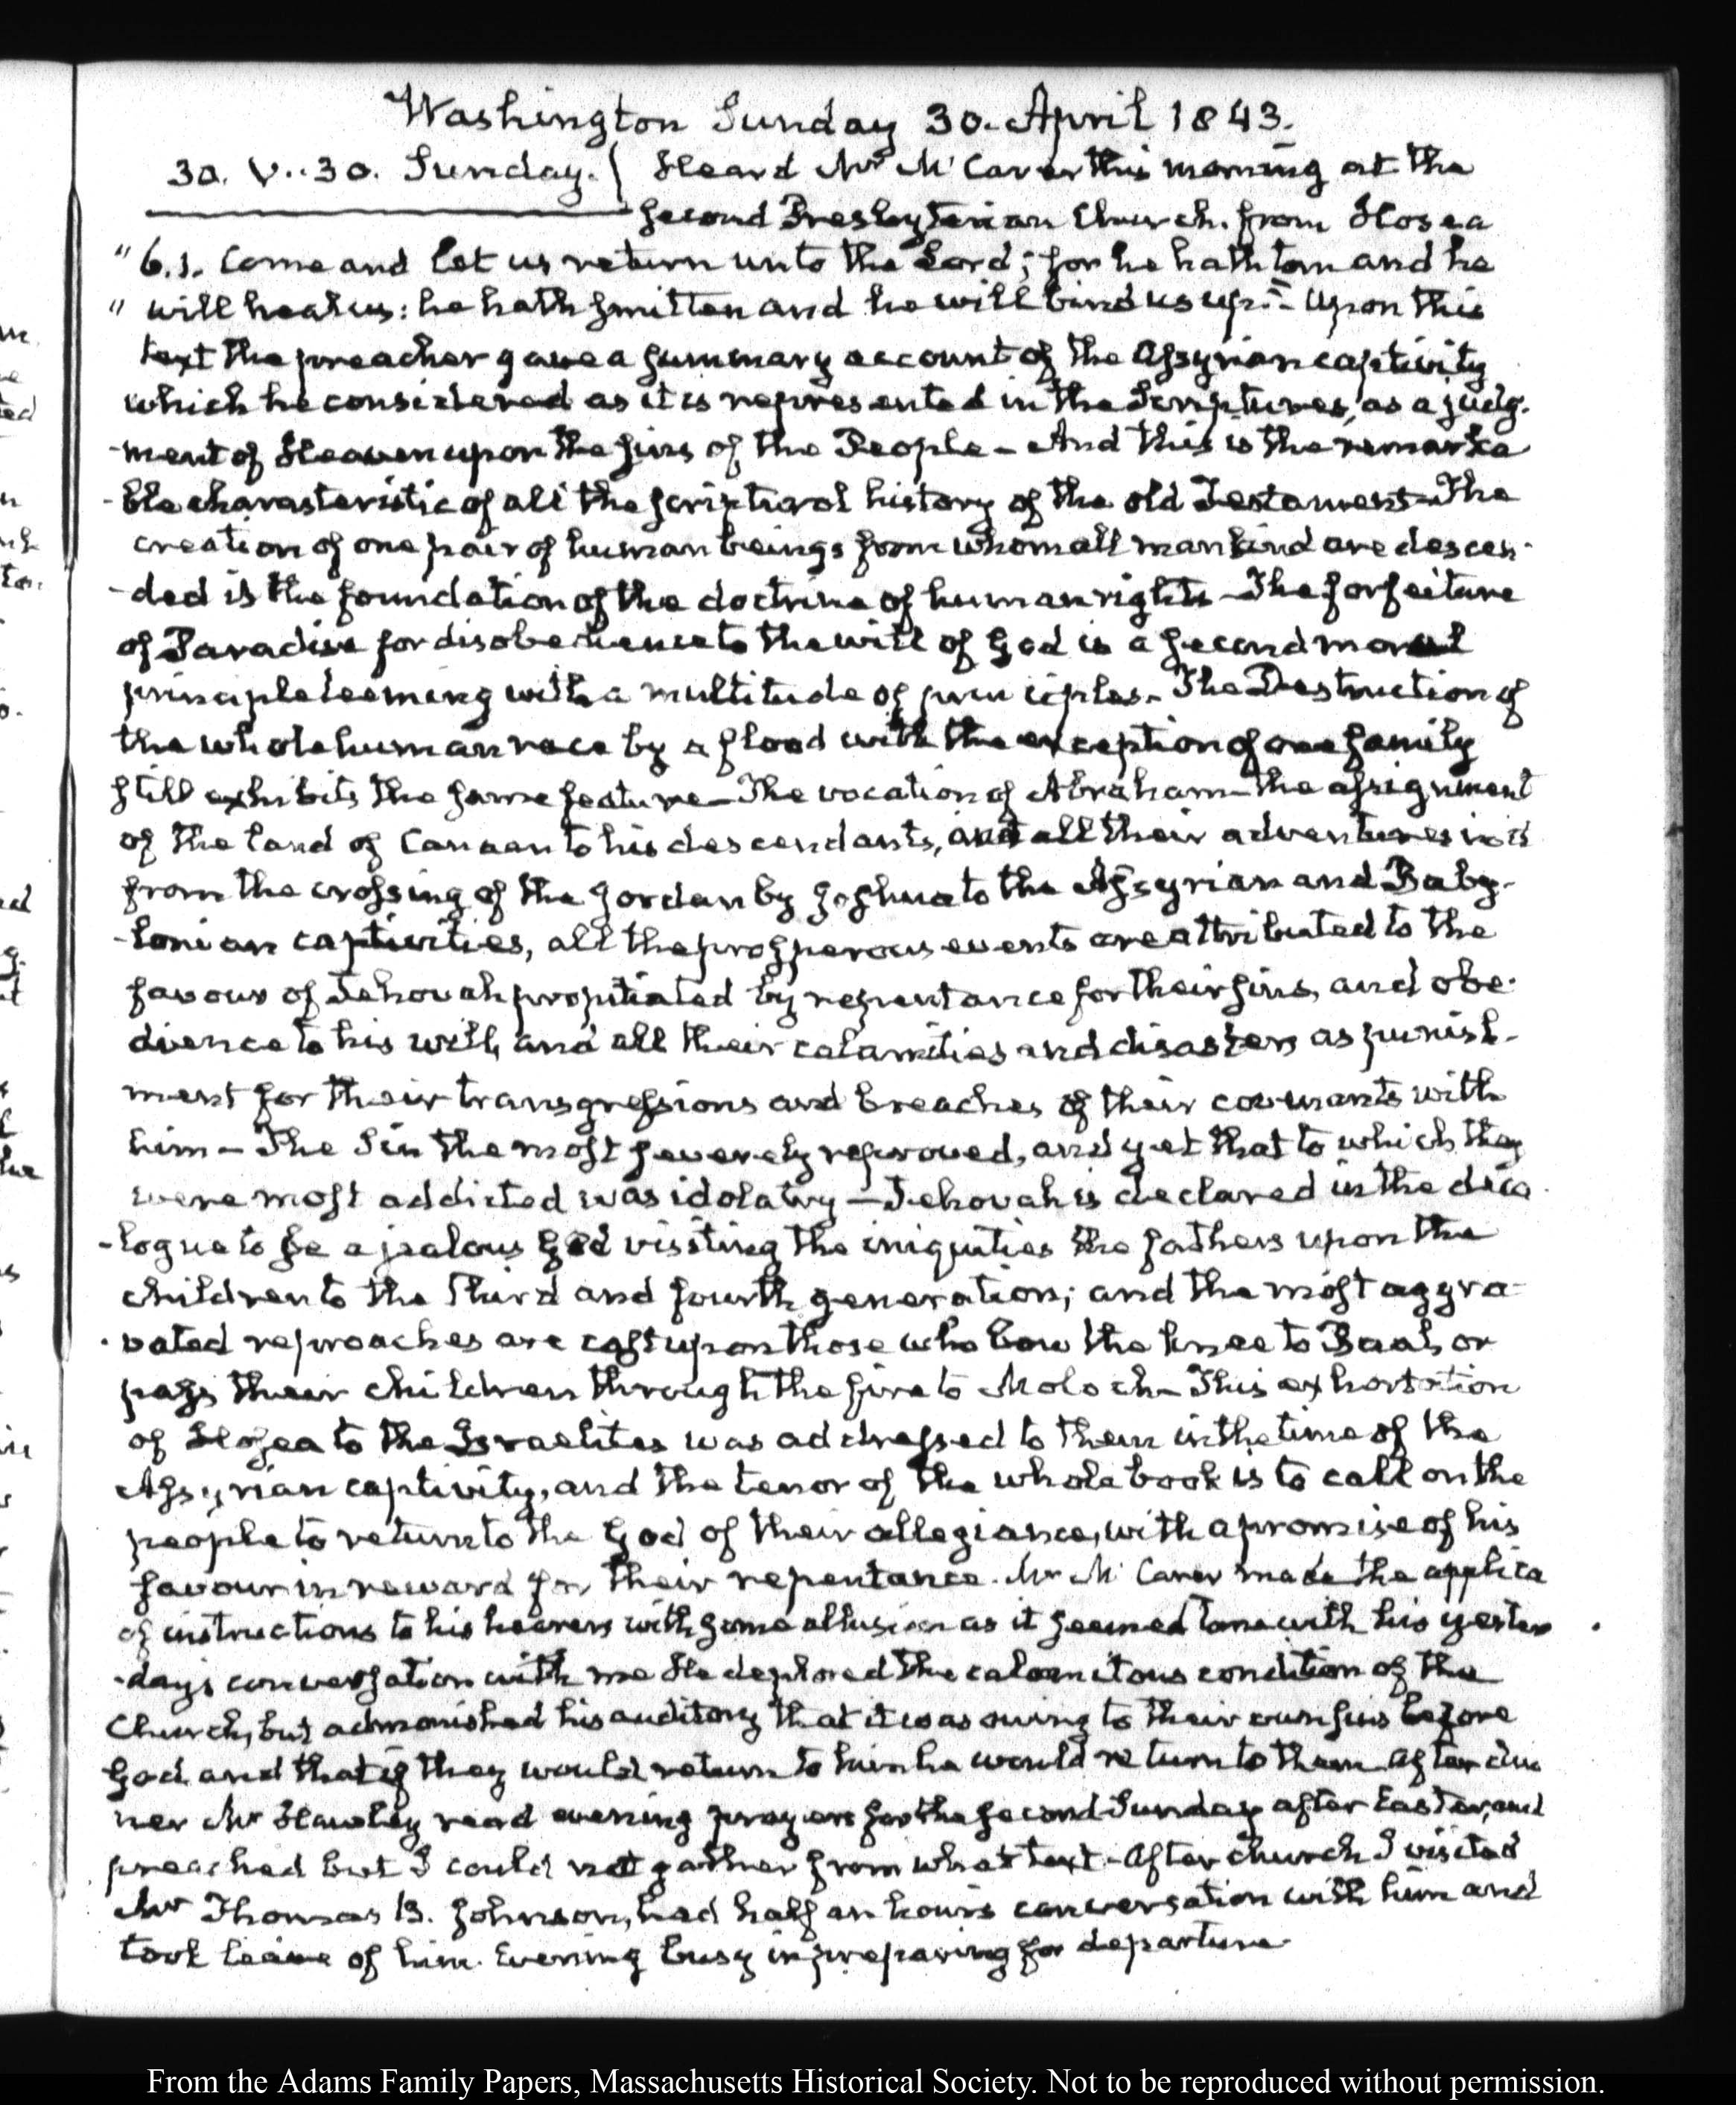 Washington Sunday 30. April 1843.
30. V..30. Sunday. { Heard Mr McCarer this morning at the
Second Presbyterian Church. from Hosea
" 6.1. Come and let us return unto the Lord; for he hath torn and he
" will heal us: he hath smitten and he will bind us up." Upon this
text the preacher gave a summary account of the Assyrian captivity
which he considered as it is represented in the Scriptures, as a judg-
-ment of Heaven upon the sins of the People - And this is the remarka
-ble characteristic of all the scriptural history of the old Testament - The
creation of one pair of human beings from whom all mankind are descen-
-ded is the foundation of the doctrine of human rights - The forfeiture
of Paradise for disobedience to the will of God is a second moral
principle teeming with a multitude of principles. The Destruction of
the whole human race by a flood with the exception of one family
still exhibits the same feature - The vocation of Abraham - the assignment
of the land of Canaan to his descendants, and all their adventures in it
from the crossing of the Jordan by Joshua to the Assyrian and Baby-
-lonian captivities, all the prosperous events are attributed to the
favour of Jehovah propitiated by repentance for their sins, and obe-
dience to his will, and all their calamities and disasters as punish-
ment for their transgressions and breaches of their covenants with
him - The Sin the most severely reproved, and yet that to which they
were most addicted was idolatry - Jehovah is declared in the deca
-logue to be a jealous God visiting the iniquities the fathers upon the
children to the third and fourth generation; and the most aggra-
-vated reproaches are cast upon those who bow the knee to Baal, or
pass their children through the fire to Moloch - This exhortation
of Hosea to the Israelites was addressed to them in the time of the
Assyrian captivity, and the tenor of the whole book is to call on the
people to return to the God of their allegiance, with a promise of his
favour in reward for their repentance. Mr McCarer made the applica
of instructions to his hearers with some allusion as it seemed to me with his yester
-day's conversation with me He deplored the calamitous condition of the
Church, but admonished his auditory that it was owing to their own sins before
God and that if they would return to him he would return to them. After din
ner Mr Hawley read evening prayers for the second Sunday after Easter, and
preached but I could not gather from what text - After church I visited
Mr Thomas B. Johnson, had half an hour's conversation with him and
took leave of him. Evening busy in preparing for departure.
From the Adams Family Papers, Massachusetts Historical Society. Not to be reproduced without permission.